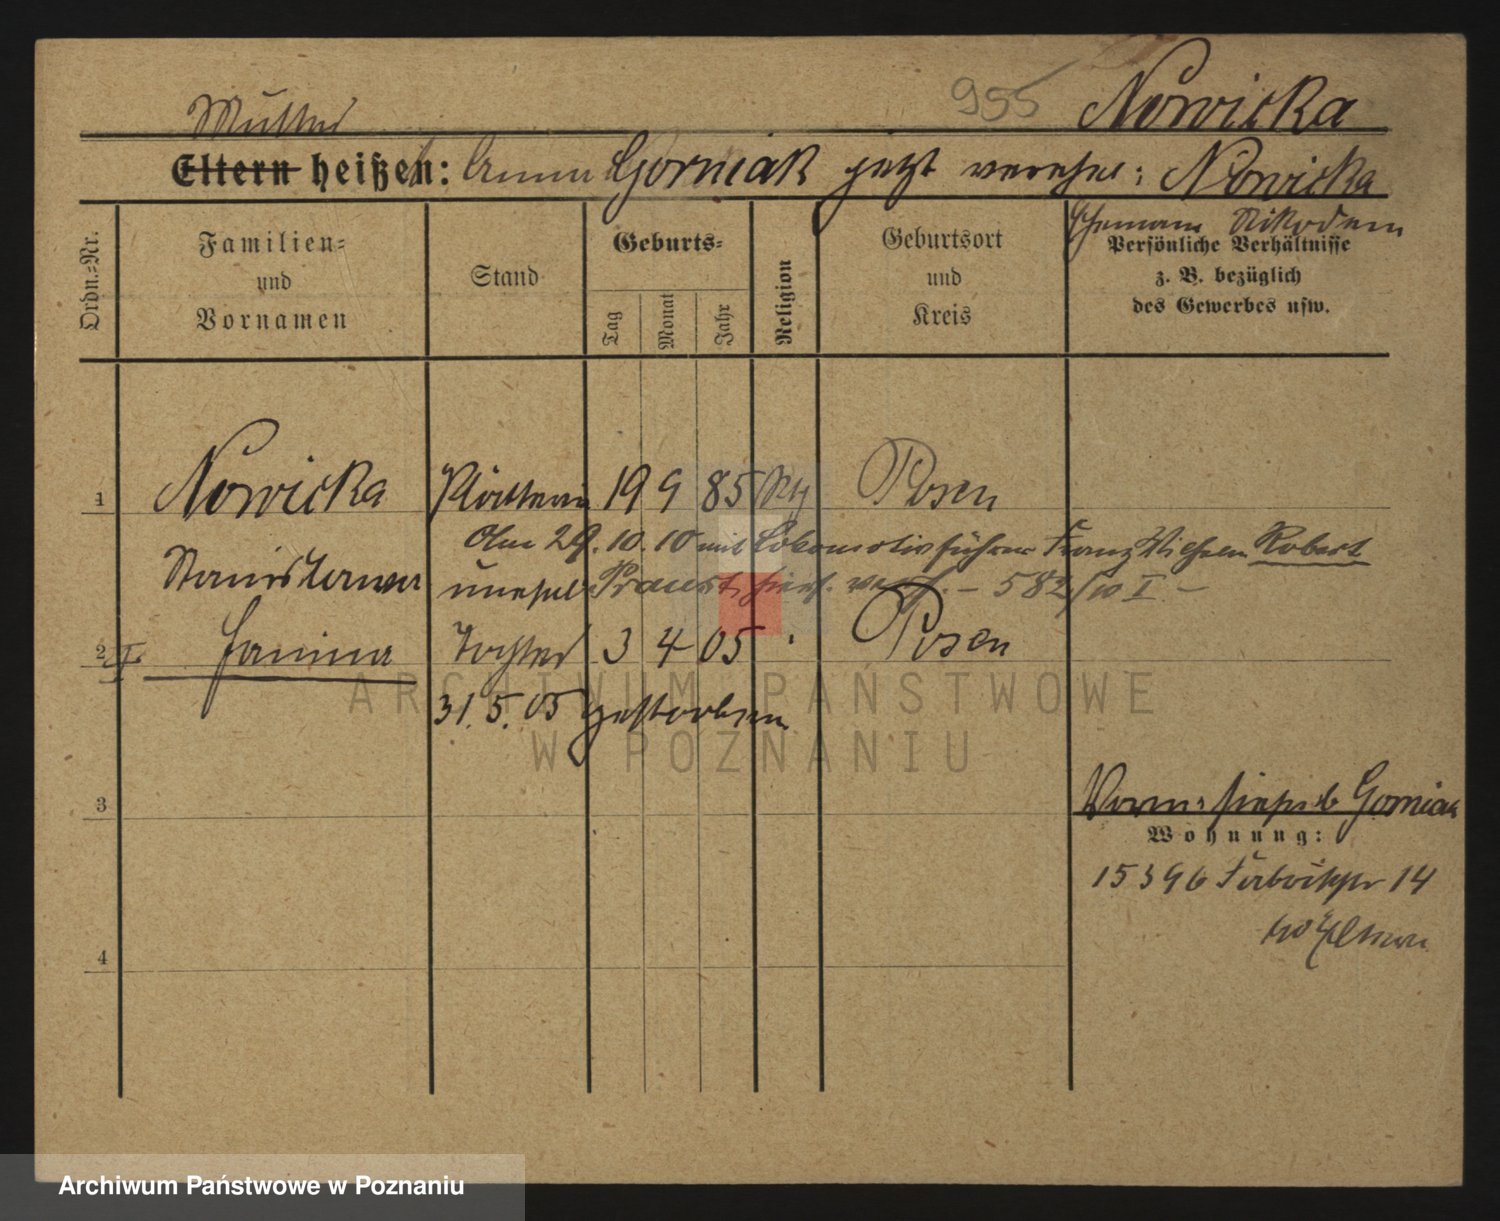 955 Nowicka
Mutter
Eltern heißen: Anna Gorniak jetzt verehel: Nowicka
Ehemann Nikodem
Ordn.-Nr.
Familien-
und
Vornamen
Stand
Geburts-
Tag
Monat
Jahr
Religion
Geburtsort
und
Kreis
Persönliche Verhältnisse
z. B. bezüglich
des Gewerbes usw.
1 Nowicka Plätterin 19 9 85 Posen
Am 29.10.10 mit Lokomotivführer Franz Wilhelm Robert
Stanislawa unehel 582/10 I. –
2 Janina Tochter 3 4 05 Posen
31.5.05 gestorben
3
Gorniak
Wohnung:
15396 14
4
ARCHIWUM PAŃSTWOWE
W POZNANIU
Archiwum Państwowe w Poznaniu